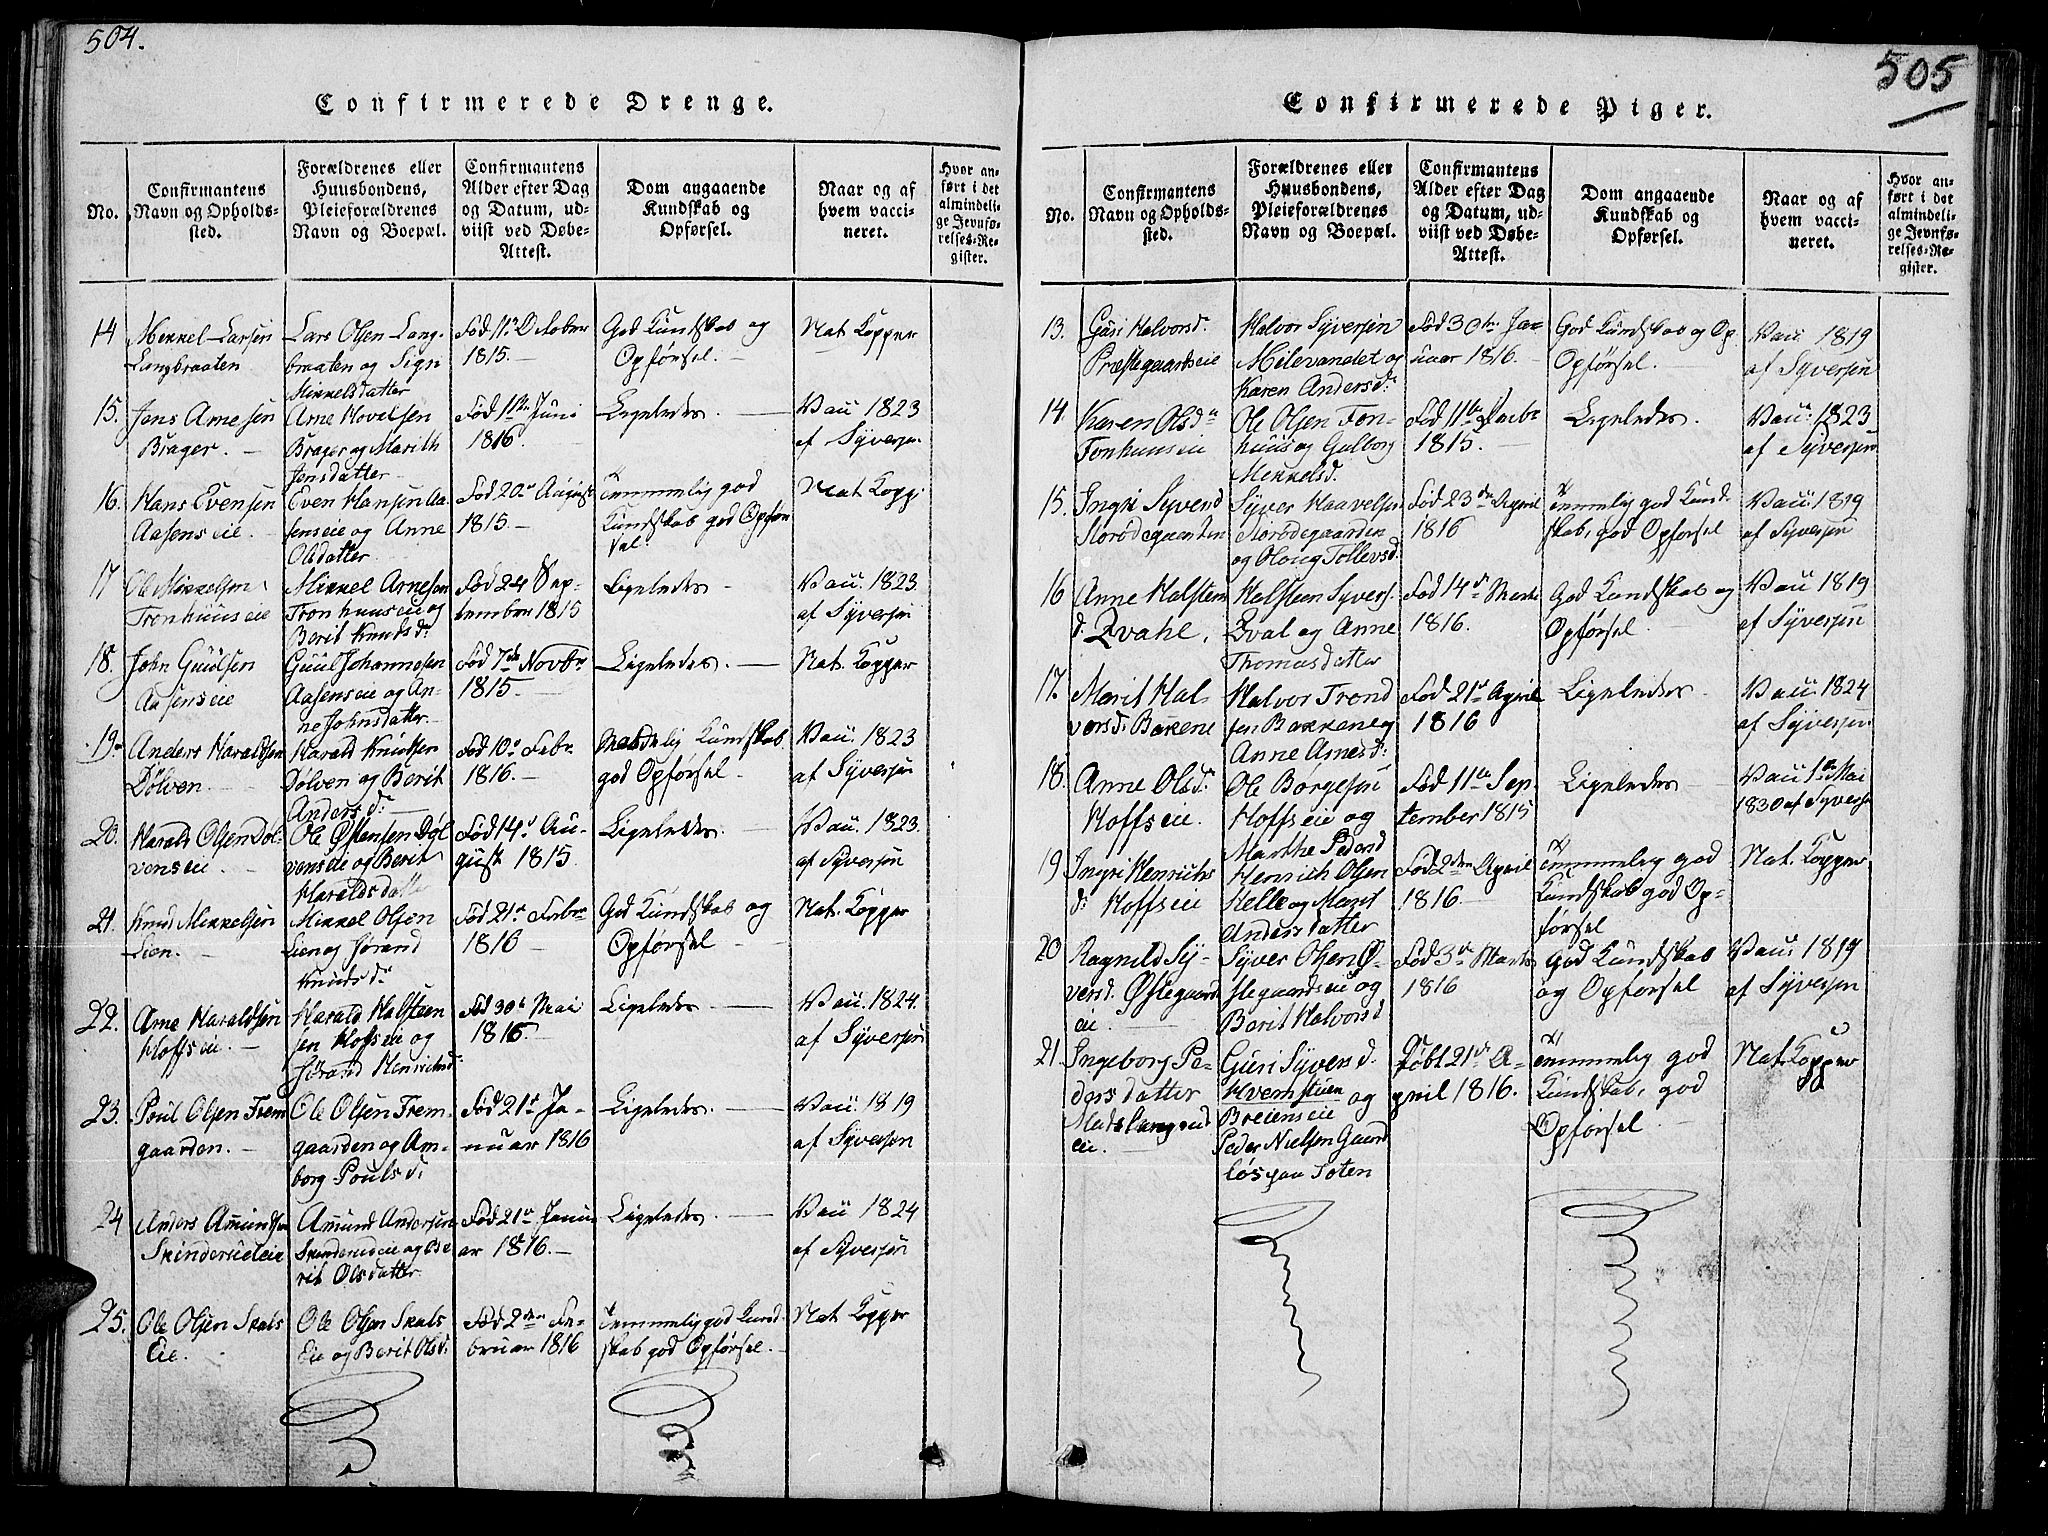 504.
Confirmerede Drenge.
No.
Confirmantens
Navn og Opholds-
sted.
Forældrenes eller
Huusbondens,
Pleieforældrenes
Navn og Boepæl.
Confirmantens
Alder efter Dag
og Datum, ud-
viist ved Døbe-
Attest.
Dom angaaende
Kundskab og
Opførsel.
Naar og af
hvem vacci-
neret.
Hvor an-
ført i det
almindeli-
ge Jevnfø-
relses-Re-
gister.
14
Mekkel Larsen
Langbraaten
Lars Olsen Lang-
braaten og Sigri
Mikkelsdatter
Fød 11te October
1815.
God Kundskab og
Opførsel.
Nat. Kopper
15.
Jens Arnesen
Brager.
Arne Hovelsen
Brager og Marith
Jensdatter
Fød 11te Juni
1816.
Ligeledes.
Vau 1823
af Syversen
16.
Hans Evensen
Aasens eie.
Even Hansen Aa-
sens eie og Anne
Olsdatter
Fød 20de August
1815.
Temmelig god
Kundskab god Opfør
sel.
Nat. Kopp
17
Ole Mikkelsen
Tronhuus eie
Mikkel Arnesen
Tronhuus eie og
Berit Knudsdr
Fød 24 Sep-
tember 1815
Ligeledes
Vau. 1823.
af Syversen
18.
John Guulsen
Aasens eie
Guul Johannesen
Aasens eie og An-
ne Johnsdatter
Fød 7de Novbr
1815.
Ligeledes.
Nat. Kopper
19.
Anders Haraldsen
Dølven.
Harald Knudsen
Dølven og Berit
Andersd:
Fød 10de Febr
1816.
Maadelig Kundskab
god Opførsel
Vau. 1823
af Syversen
20.
Harald Olsen Døl-
vens eie.
Ole Østensen Døl
vens eie og Berit
Haraldsdatter
Fød 14de Au-
gust 1815.
Ligeledes
Vau. 1823.
af Syversen
21.
Knud Mikkelsen
Lien.
Mikkel Olsen
Lien og Jørand
Knudsdr
Fød 21de Febr
1816
God Kundskab og
Opførsel
Nat. Kopper
22.
Arne Haraldsen
Hoffs eie.
Harald Halsteen
sen Hoffs eie og
Jørand Henrichsd:
Fød 30te Mai
1816.
Ligeledes
Vau. 1824.
af Syversen
23.
Poul Olsen Frem
gaarden.
Ole Olsen Frem-
gaarden og Am-
borg Poulsd:
Fød 21de Ja-
nuar 1816
Ligeledes.
Vau. 1819
af Syversen
24
Anders Amundsen
Skinderud eie
Amund Andersen
Skinderud eie og Be
rit Olsdatter
Fød 21de Janu
ar 1816.
Ligeledes.
Vau 1824
af Syversen
25.
Ole Olsen Skals
Eie.
Ole Olsen Skals
Eie og Berit Olsd:
Fød 2den Fe-
bruar 1816
Temmelig god Kund
skab god Opførsel.
Nat Kopper
505
Confirmerede Piger.
No.
Confirmantens
Navn og Opholds-
sted.
Forældrenes eller
Huusbondens,
Pleieforældrenes
Navn og Boepæl.
Confirmantens
Alder efter Dag
og Datum, ud-
viist ved Døbe-
Attest.
Dom angaaende
Kundskab og
Opførsel.
Naar og af
hvem vacci-
neret.
Hvor an-
ført i det
almindeli-
ge Jevnfø-
relses-Re-
gister.
13.
Guri Halvorsd:
Præstegaards eie
Halvor Syversen
Milevandet og
Karen Andersd:
Fød 30te Ja-
nuar 1816.
God Kundskab og Op
Opførsel.
Vau. 1819
af Syversen
14.
Karen Olsdr
Tonhuus eie
Ole Olsen Ton-
huus og Gulborg
Mekkelsd.
Fød 11te
1815.
Ligeledes.
Vau. 1823
af Syversen
15.
Ingri Syversd
Norødegaarden
Syver Haavelsen
Norødegaarden
og Oloug Tollevsd:
Fød 23de April
1816
Temmelig god Kund-
skab, god Opførsel
Vau. 1819
af Syversen
16
Anne Halsteen
d: Qvahl.
Halsteen Syvers.
Qval og Anne
Thomasdatter
Fød 14de Marts
1816.
God Kundskab og
Opførsel
Vau 1819
af Syversen
17.
Marit Hal
vorsd: Bakkene
Halvor Trond
sen Bakkene og
Anne Arnesd:
Fød 21de April
1816
Ligeledes
Vau. 1824
af Syversen
18.
Anne Olsd:
Hoffs eie.
Ole Børgesen
Hoffs eie og
Marthe Pedersd
Fød 11te Sep
tember 1815
Ligeledes
Vau 1ste Mai
1830 af Syversen
19
Ingri Henrichs
d: Hoffs eie
Henrich Olsen
Helle og Marit
Andersdatter
Fød 2den April
1816
Temmelig god
Kundskab god Op-
førsel
Nat. Kopper
20
Ragnild Sy-
versd: Østegaards
eie
Syver Olsen Ø-
stegaards eie og
Berit Halvorsd
Fød 3de Marts
1816
God Kundskab
og Opførsel
Vau. 1819
af Syversen
21.
Ingeborg Pe-
dersdatter
eie.
Guri Syversd.
Kvemstuen og
Breiens eie
Peder Nielsen Gaard
løs paa Toten
Døbt 21de A-
pril 1816.
Temmelig god
Kundskab, god
Opførsel
Nat. Kopper